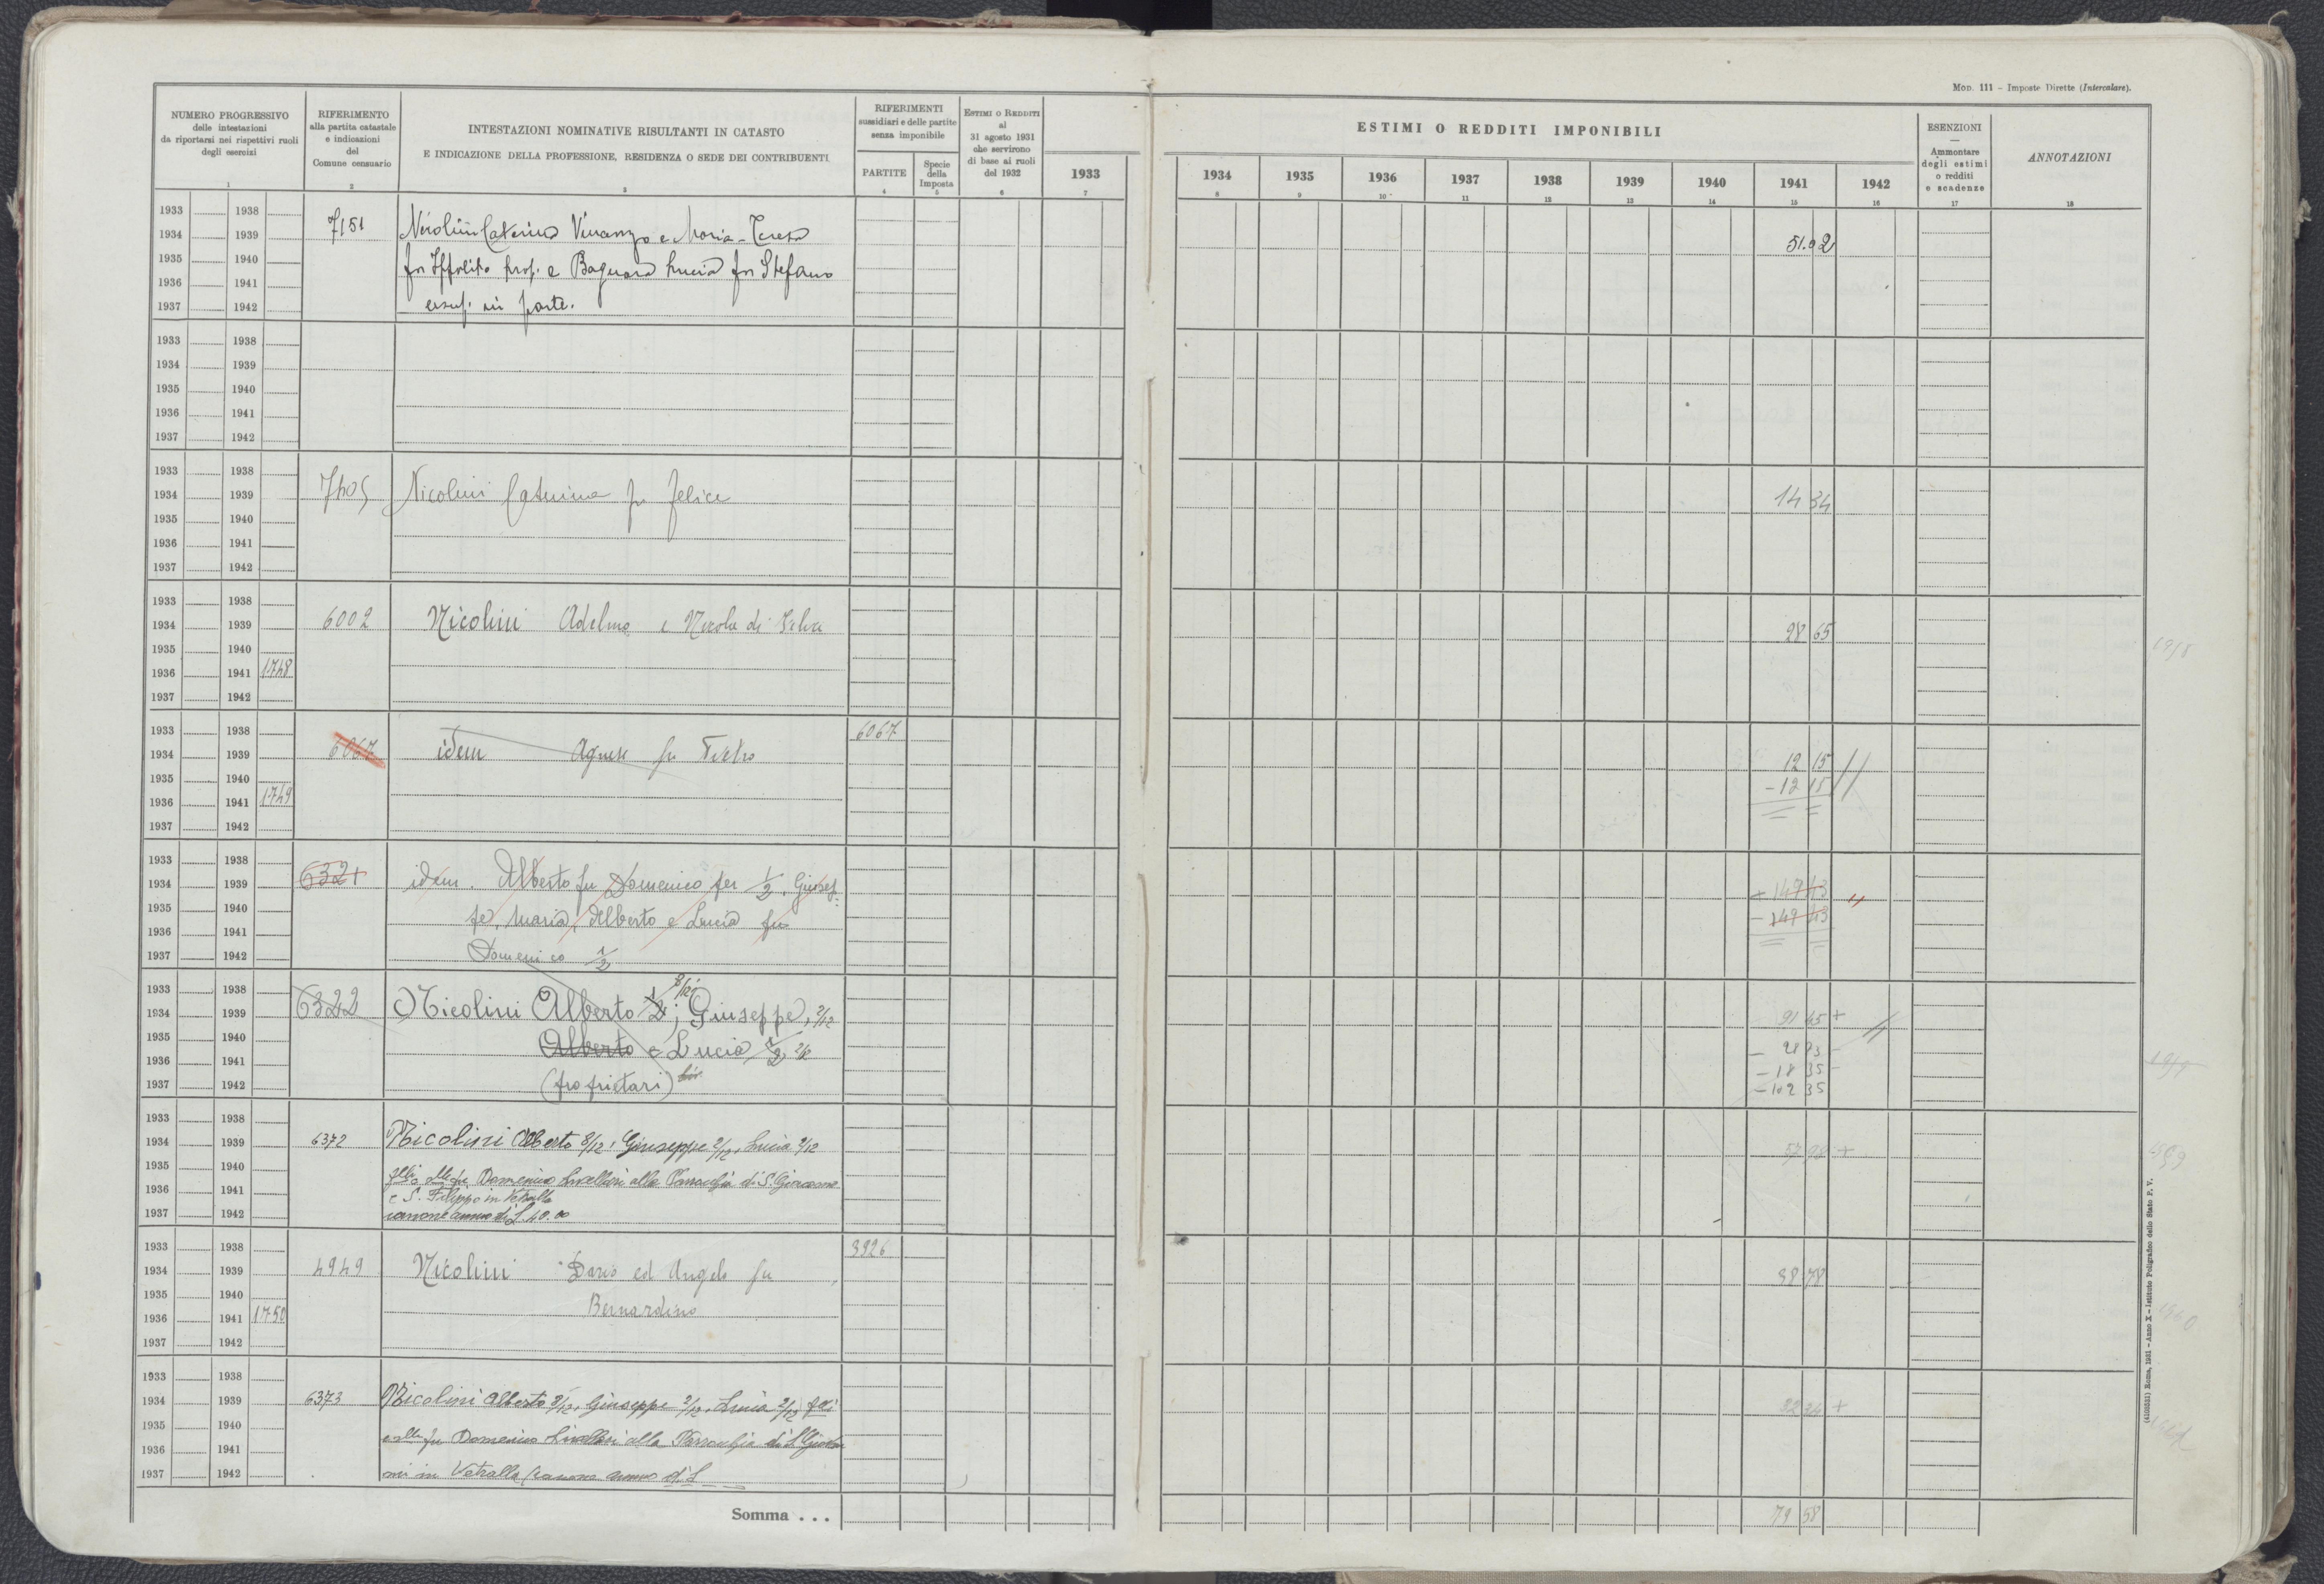 Mod. 111 – Imposte Dirette (Intercalare).
NUMERO PROGRESSIVO
delle intestazioni
da riportarsi nei rispettivi ruoli
degli esercizi
1
RIFERIMENTO
alla partita catastale
e indicazioni
del
Comune censuario
2
INTESTAZIONI NOMINATIVE RISULTANTI IN CATASTO
E INDICAZIONE DELLA PROFESSIONE, RESIDENZA O SEDE DEI CONTRIBUENTI
3
RIFERIMENTI
sussidiari e delle partite
senza imponibile
PARTITE
4
Specie
della
Imposta
5
ESTIMI O REDDITI
al
31 agosto 1931
che servirono
di base ai ruoli
del 1932
6
1933
7
ESTIMI O REDDITI IMPONIBILI
1934 1935 1936 1937 1938 1939 1940 1941 1942
8 9 10 11 12 13 14 15 16
ESENZIONI
—
Ammontare
degli estimi
o redditi
e scadenze
17
ANNOTAZIONI
18
1933 1938
1934 1939 7151 Caterina e Maria-Teresa 51.02
1935 1940 fu Ippolito prop. e Lucia fu Stefano
1936 1941
1937 1942 usuf. in parte.
1933 1938
1934 1939
1935 1940
1936 1941
1937 1942
1933 1938
1934 1939 Nicolini Caterina fu Felice 14 34
1935 1940
1936 1941
1937 1942
1933 1938
1934 1939 6002 Nicolini Adelmo e di 28 65
1935 1940
1936 1941 1748
1937 1942
1933 1938 6067
1934 1939 6067 idem Agnese fu Pietro 12 15
1935 1940 – 12 15
1936 1941 1749
1937 1942
1933 1938
1934 1939 6321 idem. Alberto fu Domenico per 1/2. Giusep- + 149 43
1935 1940 pe, Maria, Alberto e Lucia fu – 149 43
1936 1941
1937 1942 Domenico 1/2
1933 1938 8/12
1934 1939 6322 Nicolini Alberto 1/2; Giuseppe, 2/12 91 45 +
1935 1940 Alberto e Lucia 1/2
1936 1941 – 18 35 –
1937 1942 (proprietari) – 102 35
1933 1938
1934 1939 6372 Nicolini Alberto 8/12, Giuseppe 2/12, Lucia 2/12
1935 1940 Domenico livellari alla Parrocchia di S. Giovanni
1936 1941 e S. Filippo in Vetralla
1937 1942 canone annuo di L. 40.00
1933 1938 3926
1934 1939 4949 Nicolini Dario ed Angelo fu 38 78
1935 1940
1936 1941 1750 Bernardino
1937 1942
1933 1938
1934 1939 6373 Nicolini Alberto 8/12, Giuseppe 2/12, Lucia 2/12
1935 1940
1936 1941 fu Domenico livellari alla Parrocchia di S. Giovan
1937 1942 ni in Vetralla (canone annuo di L
Somma . . . 79 58
(4103531) Roma, 1931 – Anno X – Istituto Poligrafico dello Stato P. V.